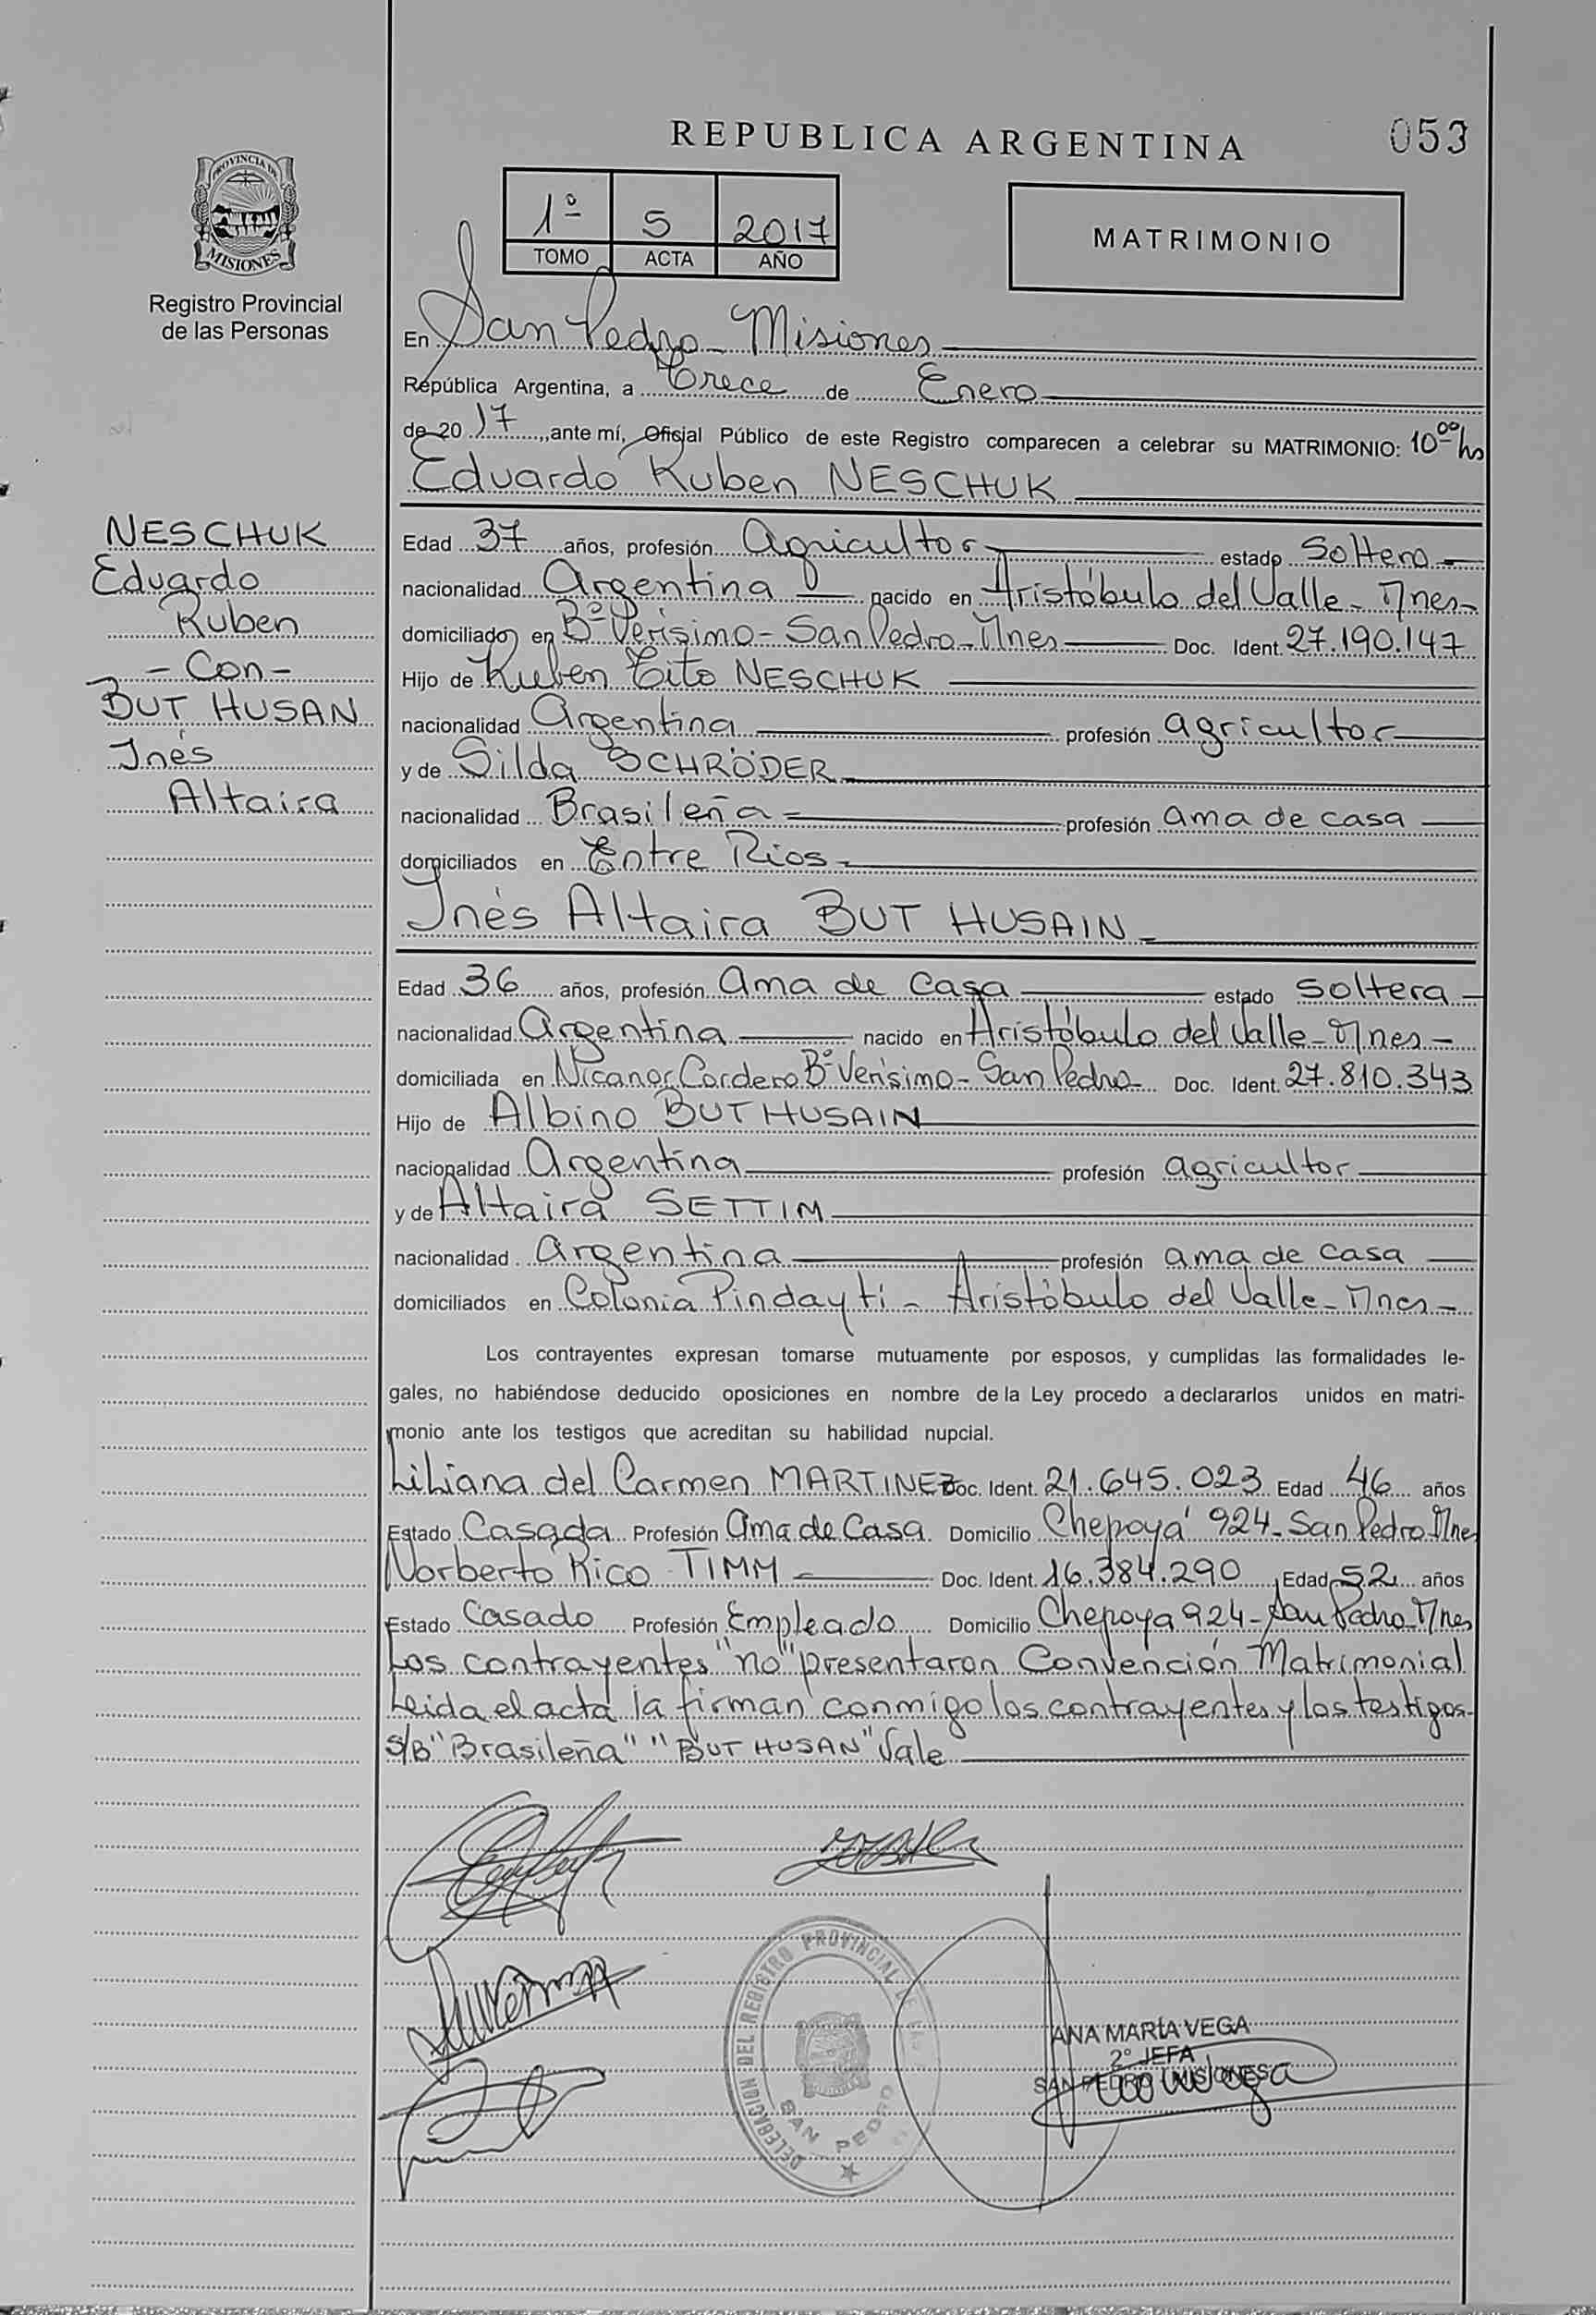 REPUBLICA ARGENTINA
053
PROVINCIA DE
MISIONES
Registro Provincial
de las Personas
1º 5 2017
TOMO ACTA AÑO
MATRIMONIO
En San Pedro - Misiones
República Argentina, a Trece de Enero
de 20 17, ante mí, Oficial Público de este Registro comparecen a celebrar su MATRIMONIO: 10⁰⁰ hs
Eduardo Ruben NESCHUK
NESCHUK
Eduardo
Ruben
- Con -
BUT HUSAN
Inés
Altaira
Edad 37 años, profesión Agricultor estado Soltero
nacionalidad Argentina nacido en Aristóbulo del Valle - Mnes -
domiciliado en Bº Verísimo - San Pedro - Mnes Doc. Ident. 27.190.147
Hijo de Ruben Tito NESCHUK
nacionalidad Argentina profesión agricultor
y de Silda SCHRÖDER
nacionalidad Brasileña profesión ama de casa
domiciliados en Entre Rios -
Inés Altaira BUT HUSAIN
Edad 36 años, profesión Ama de Casa estado soltera
nacionalidad Argentina nacido en Aristóbulo del Valle - Mnes -
domiciliada en Nicanor Cordero Bº Verísimo - San Pedro Doc. Ident. 27.810.343
Hijo de Albino BUT HUSAIN
nacionalidad Argentina profesión agricultor
y de Altaira SETTIM
nacionalidad Argentina profesión ama de casa
domiciliados en Colonia Pindayti - Aristóbulo del Valle - Mnes -
Los contrayentes expresan tomarse mutuamente por esposos, y cumplidas las formalidades le-
gales, no habiéndose deducido oposiciones en nombre de la Ley procedo a declararlos unidos en matri-
monio ante los testigos que acreditan su habilidad nupcial.
Liliana del Carmen MARTINEZ Doc. Ident. 21.645.023 Edad 46 años
Estado Casada Profesión Ama de Casa Domicilio Chepoyá 924 - San Pedro Mnes
Norberto Rico TIMM Doc. Ident. 16.384.290 Edad 52 años
Estado Casado Profesión Empleado Domicilio Chepoya 924 - San Pedro - Mnes
Los contrayentes "no" presentaron Convención Matrimonial
Leida el acta la firman conmigo los contrayentes y los testigos -
S/B "Brasileña" "BUT HUSAN" Vale
DELEGACION DEL REGISTRO PROVINCIAL DE LAS
SAN PEDRO
ANA MARÍA VEGA
2º JEFA
SAN PEDRO MISIONES